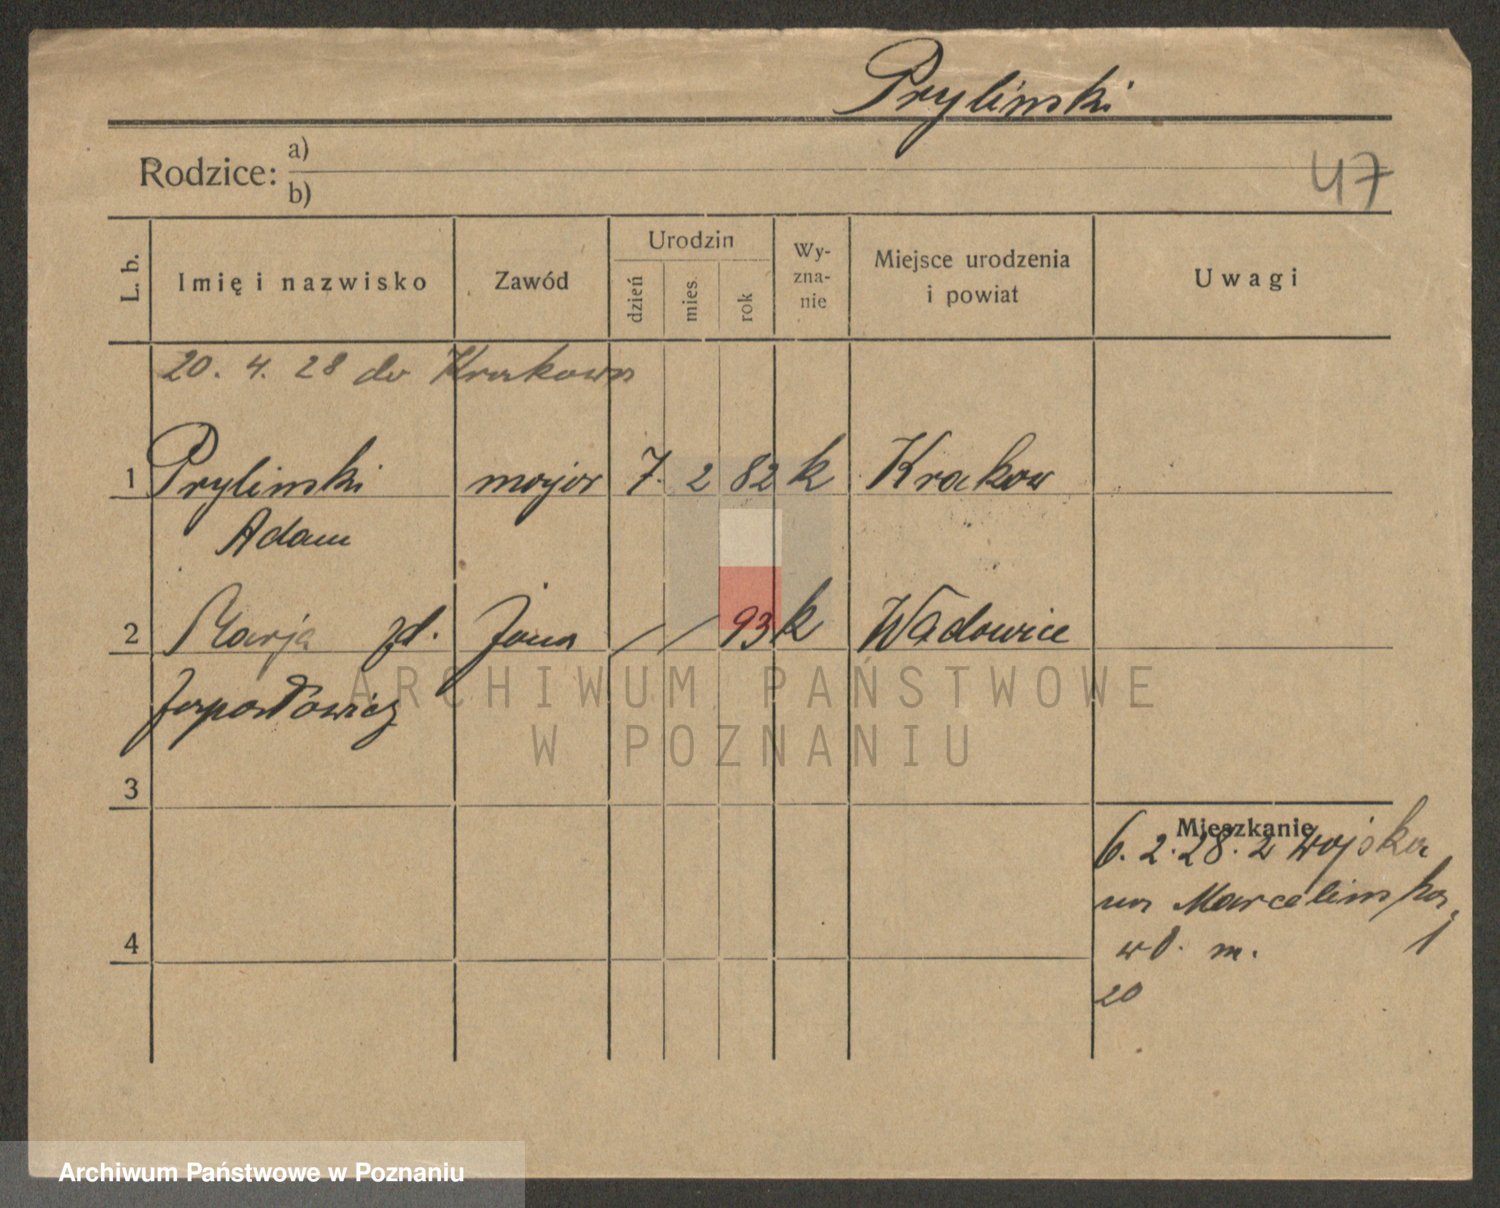 Prylinski
Rodzice: a)
b)
47
L. b.
Imię i nazwisko
Zawód
Urodzin
dzień
mies.
rok
Wy-
zna-
nie
Miejsce urodzenia
i powiat
Uwagi
20. 4. 28 do Krakowa
1 Prylinski major 7. 2 82 k Krakow
Adam
2 Marja zd. żona / / 93 k Wadowice
3
Mieszkanie
6. 2. 28. z wojska
na Marcelinska
1
wł. m.
20
4
ARCHIWUM PAŃSTWOWE
W POZNANIU
Archiwum Państwowe w Poznaniu